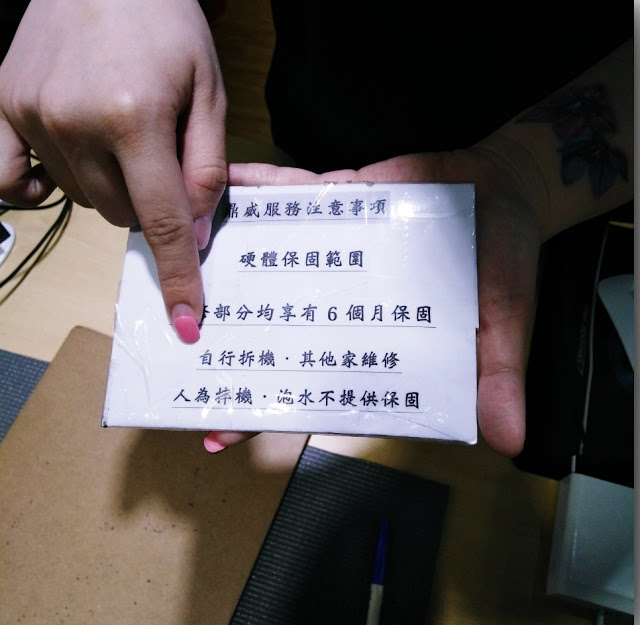 鼎威服務注意事項
硬體保固範圍
部分均享有6個月保固
自行拆機·其他家維修
人為摔機·泡水不提供保固